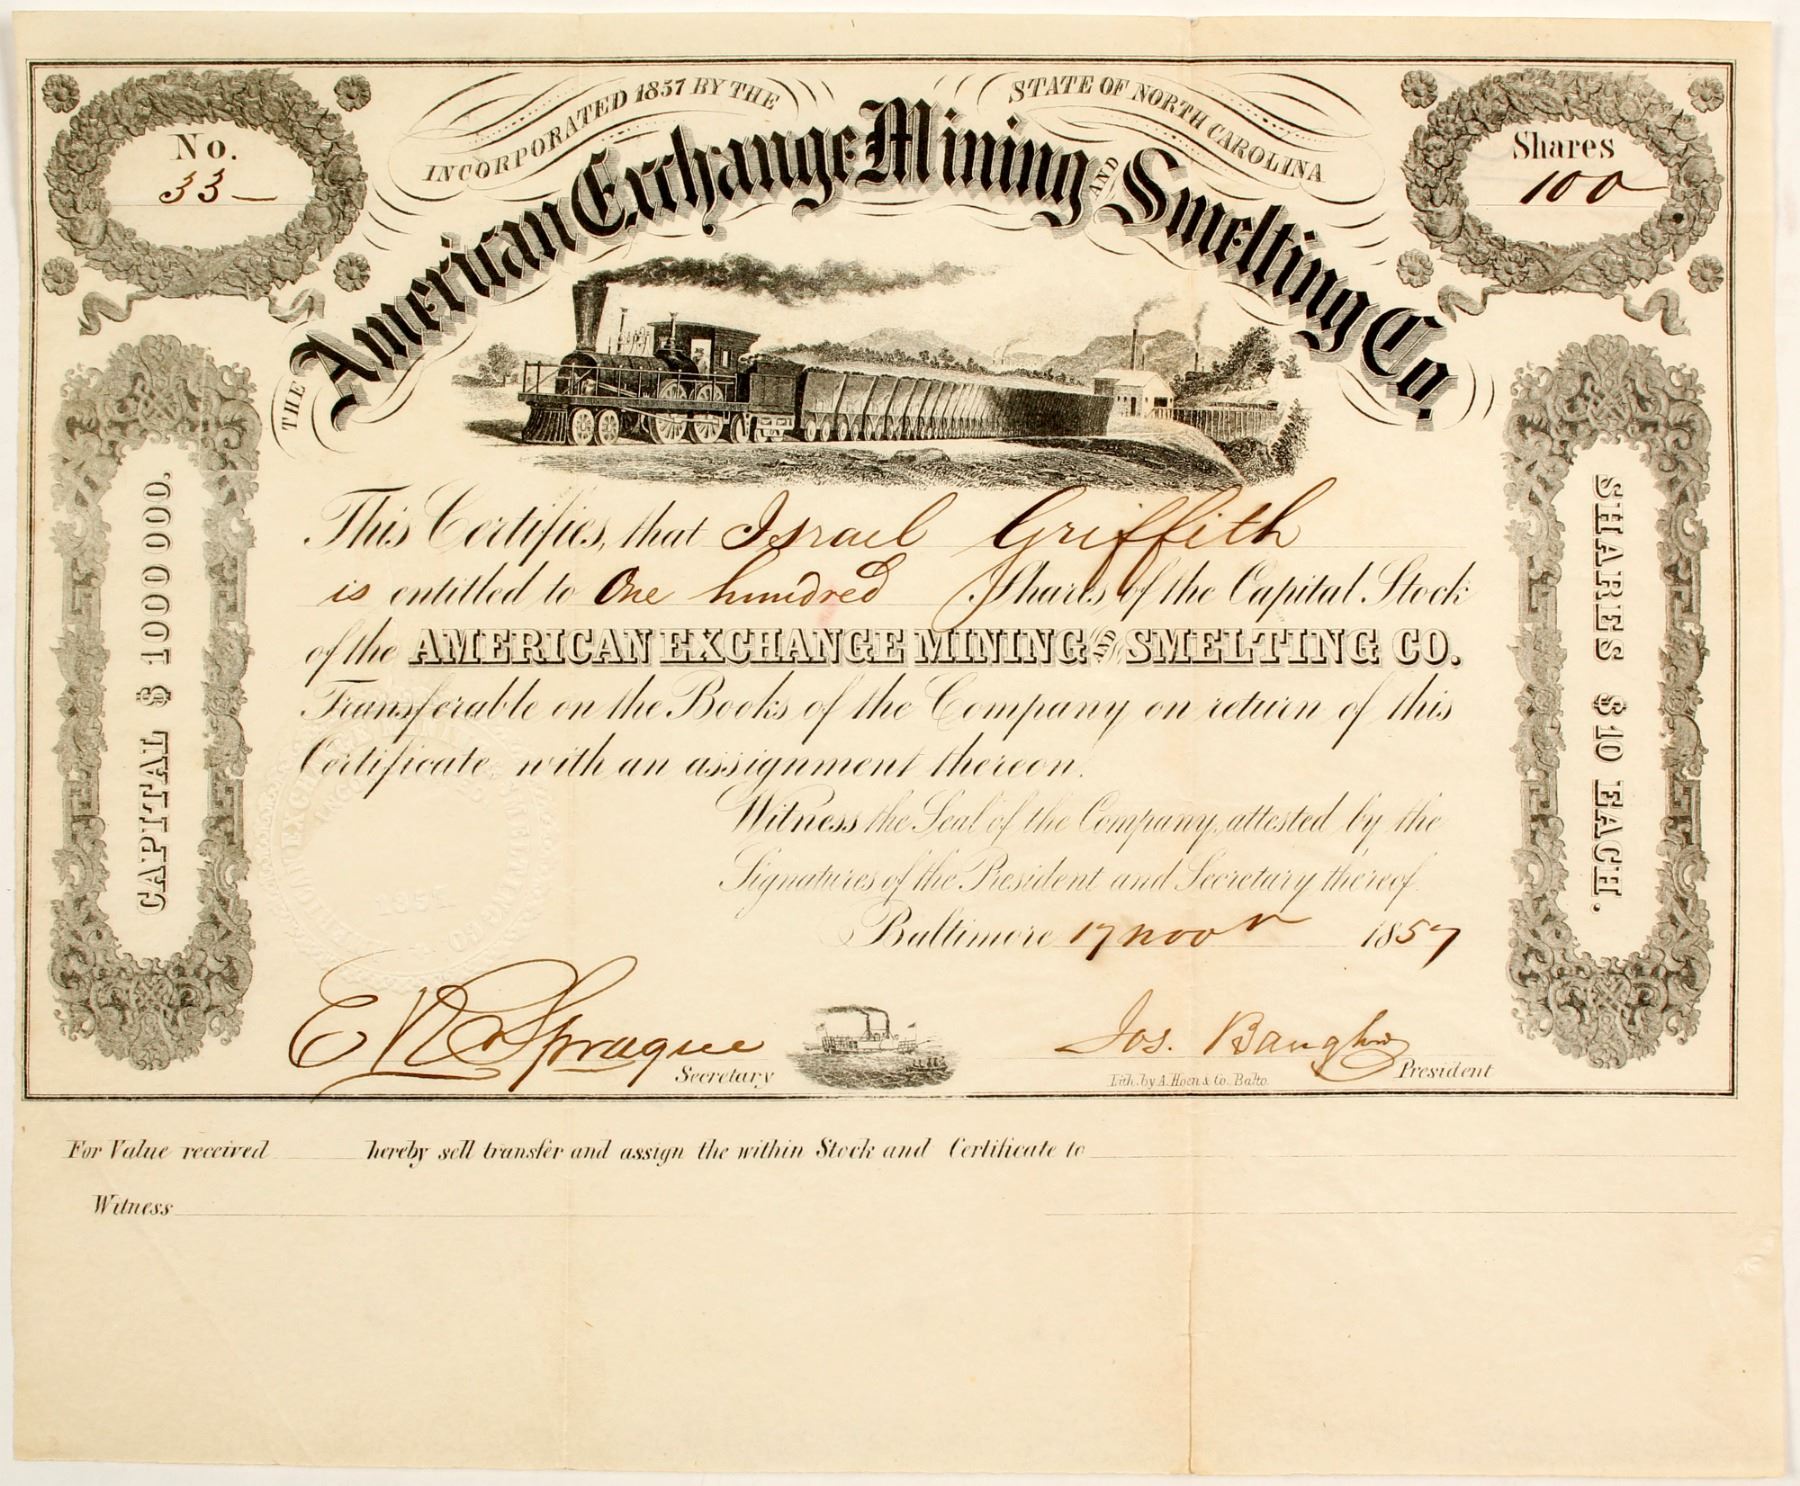 No.
33
INCORPORATED 1857 BY THE STATE OF NORTH CAROLINA
Shares
100
THE American Exchange Mining AND Smelting Co.
CAPITAL $ 1000 000.
SHARES $10 EACH.
This Certifies, that Israel Griffith
is entitled to One hundred Shares of the Capital Stock
of the AMERICAN EXCHANGE MINING AND SMELTING CO.
Transferable on the Books of the Company on return of this
Certificate, with an assignment thereon.
Witness the Seal of the Company, attested by the
Signatures of the President and Secretary thereof.
Baltimore 17 Novr 1857
1857
Sprague
Secretary
Jos.
President
Lith. by A. Hoen & Co. Balto.
For Value received hereby sell transfer and assign the within Stock and Certificate to
Witness